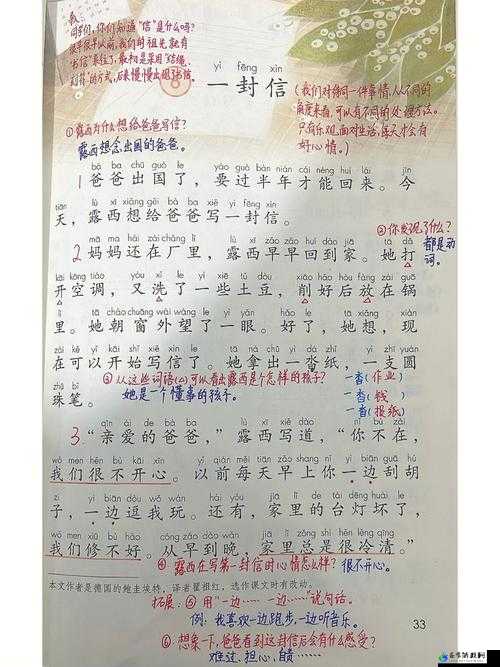 同学们,你们知道“信”是什么吗?
很早很早以前,我们的祖先就有
“书信”来往了,最初是采用“结绳、
刻符”的方式,后来慢慢出现了书信。
yì fēng xìn
6 一封信
(我们对待同一件事情,从不同的
角度来看,可以有不同的处理方法。
只有乐观面对生活,每天才会有
好心情。)
①露西为什么想给爸爸写信?
露西想念出国的爸爸。
bà ba chū guó le yào guò bàn nián cái néng huí lái jīn
1 爸爸出国了,要过半年才能回来。今
tiān lù xī xiǎng gěi bà ba xiě yì fēng xìn
天,露西想给爸爸写一封信。
②你发现了什么?
都是动词。
mā ma hái zài chǎng lǐ lù xī zǎo zǎo huí dào jiā tā dǎ
2 妈妈还在厂里,露西早早回到家。她打
kāi kōng tiáo yòu xǐ le yì xiē tǔ dòu xiāo hǎo hòu fàng zài guō
开空调,又洗了一些土豆,削好后放在锅
lǐ tā cháo chuāng wài wàng le yì yǎn hǎo le tā xiǎng xiàn
里。她朝窗外望了一眼。好了,她想,现
zài kě yǐ kāi shǐ xiě xìn le tā ná chū yì dá zhǐ yì zhī yuán
在可以开始写信了。她拿出一沓纸,一支圆
zhū bǐ
珠笔。
③从这些词语(△)可以看出露西是个怎样的孩子?
她是一个懂事的孩子。
一沓(作业)
一沓(钱)
一沓(报纸)
qīn ài de bà ba lù xī xiě dào nǐ bú zài
3 “亲爱的爸爸,”露西写道,“你不在,
wǒ men hěn bù kāi xīn yǐ qián měi tiān zǎo shang nǐ yì biān guā hú
我们很不开心。以前每天早上你一边刮胡
zi yì biān dòu wǒ wán hái yǒu jiā lǐ de tái dēng huài le
子,一边逗我玩。还有,家里的台灯坏了,
wǒ men xiū bù hǎo cóng zǎo dào wǎn jiā lǐ zǒng shì hěn lěng qīng
我们修不好。从早到晚,家里总是很冷清。”
④露西在写第一封信时心情怎么样?很不开心。
本文作者是德国的鲍圭埃特,译者瞿祖红,选作课文时有改动。
拓展:⑤用“一边…… 一边……”说句话。
例:我喜欢一边跑步,一边听音乐。
33
⑥想象一下,爸爸看到这封信后会有什么感受?
难过、担心、自责……